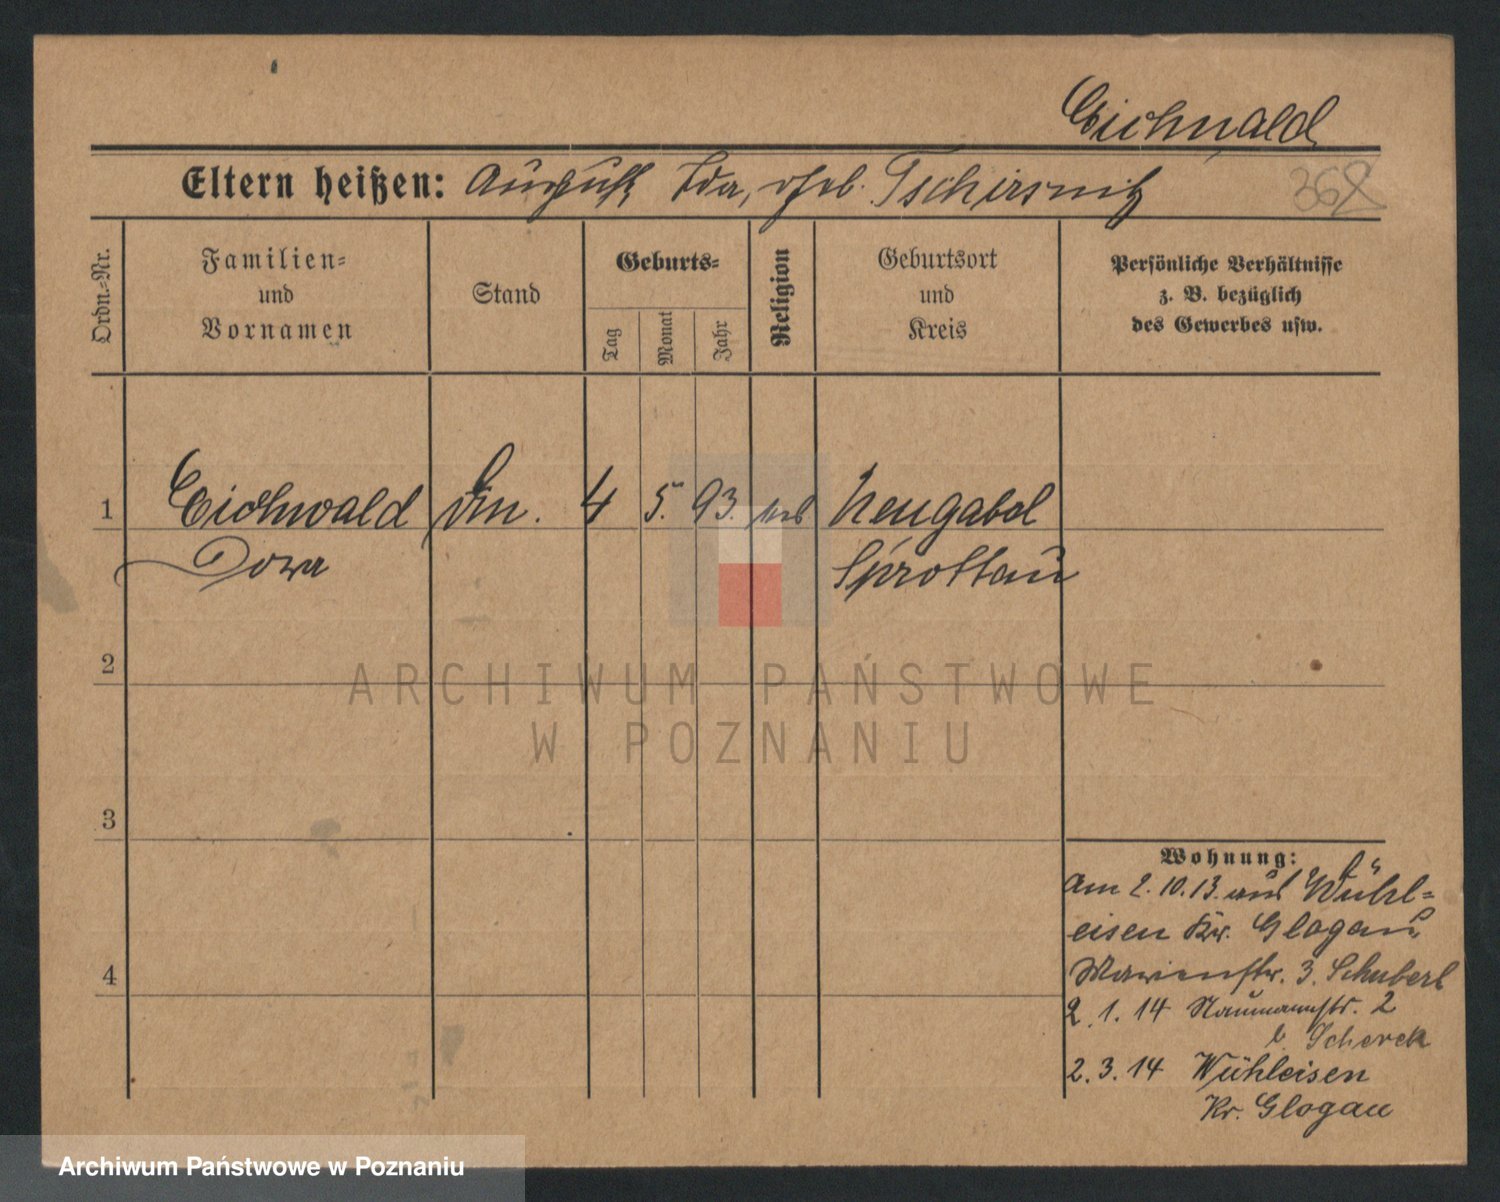 Eichwald
Eltern heißen: August Ida, geb. Tschirsnitz
362
Ordn.-Nr.
Familien-
und
Vornamen
Stand
Geburts-
Tag
Monat
Jahr
Religion
Geburtsort
und
Kreis
Persönliche Verhältnisse
z. B. bezüglich
des Gewerbes usw.
1 Eichwald 4 5. 93. Neugabel
Dora Sprottau
2
3
4
Wohnung:
Am 2.10.13. aus Wühl-
eisen Kr. Glogau
Marienstr. 3. Schubert
2.1.14 Naumannstr. 2
b. Scherek
2.3.14 Wühleisen
Kr. Glogau
ARCHIWUM PAŃSTWOWE
W POZNANIU
Archiwum Państwowe w Poznaniu